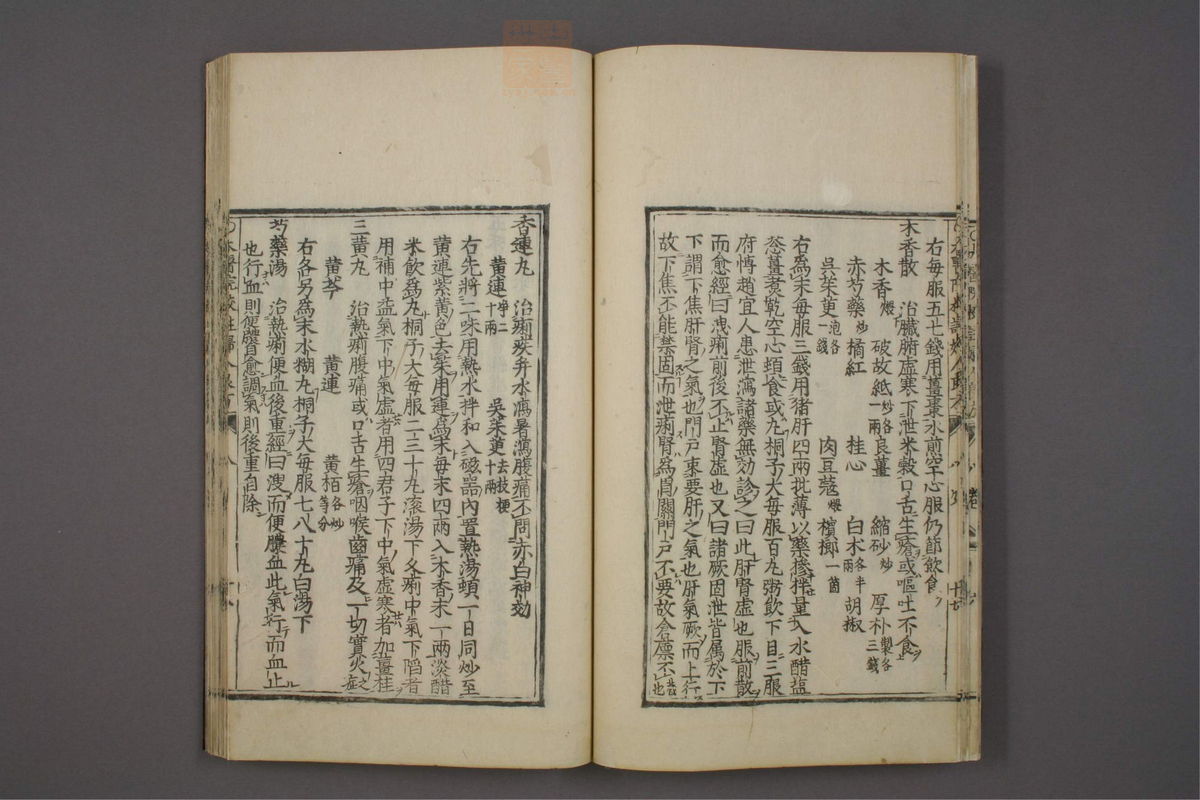 右每服五七錢用薑棗水煎空心服仍節飲食
木香散　治臟腑虛寒下泄米穀口舌生瘡或嘔吐不食
木香煨　破故紙炒各一兩　良薑　縮砂炒　厚朴製各三錢
赤芍藥炒　橘紅　桂心　白木各半兩　胡椒
吳茱萸泡各一錢　肉豆蔻煨　檳榔一箇
右為末每服三錢用猪肝四兩批薄以藥摻拌量入水醋鹽
葱薑煮乾空心頓食或丸桐子大每服百丸粥飲下日三服
府博趙宜人患泄瀉諸藥無効診之曰此肝腎虛也服前散
而愈經曰洩痢前後不止腎虛也又曰諸厥固泄皆属於下
下謂下焦肝腎之氣也門戶束要肝之氣也肝氣厥而上行
故下焦不能禁固而泄痢腎為胃關門戶不要故倉廩不也
香連丸　治痢疾并水瀉暑瀉腹痛不問赤白神効
黃連淨二十兩　吳茱萸去枝梗十兩
右先將二味用熱水拌和入磁器內置熱湯頓一日同炒至
黃連紫黃色去茱用連為末每末四兩入木香末一兩淡醋
米飲為丸桐子大每服二三十丸滾湯下久痢中氣下陷者
用補中益氣下中氣虛者用四君子下中氣虛寒者加薑桂
三黃丸　治熱痢腹痛或口舌生瘡咽喉齒痛及一切實火症
黃芩　黃連　黃栢各炒等分
右各另為末水糊丸桐子大每服七八十丸白湯下
芍藥湯　治熱痢便血後重經曰溲而便膿血此氣行而血止
也行血則便膿自愈調氣則後重自除